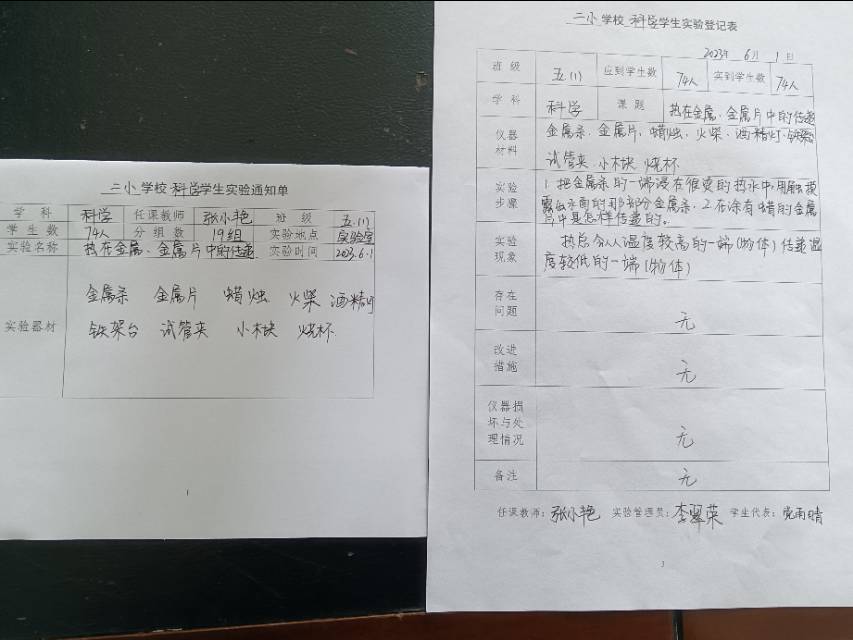 三小 学校 科学学生实验通知单
学科 科学 任课教师 张小艳 班级 五.(1)
学生数 74人 分组数 19组 实验地点 实验室
实验名称 热在金属、金属片中的传递 实验时间 2023.6.1
金属条 金属片 蜡烛 火柴 酒精灯
实验器材 铁架台 试管夹 小木块 烧杯
1
三小 学校 科学学生实验登记表
2023年 6月 1日
班级 五.(1) 应到学生数 74人 实到学生数 74人
学科 科学 课题 热在金属、金属片中的传递
仪器材料 金属条、金属片、蜡烛、火柴、酒精灯、铁架台
试管夹、小木块、烧杯
实验步骤 1.把金属条的一端浸在滚烫的热水中,用触摸
露出水面的那部分金属条、2.在涂有蜡的金属
片中是怎样传递的。
实验现象 热总会从温度较高的一端(物体)传递温
度较低的一端(物体)
存在问题 无
改进措施 无
仪器损坏与处理情况 无
备注 无
任课教师:张小艳 实验管理员:李翠荣 学生代表:党雨晴
3